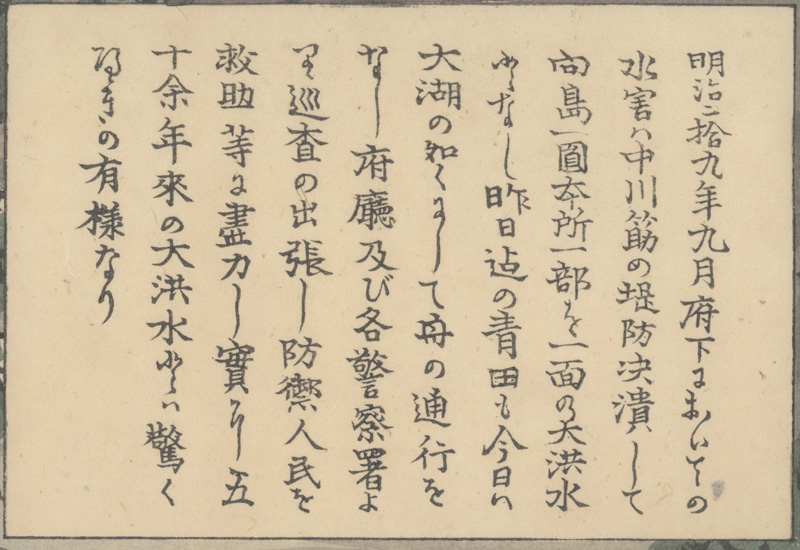 明治二拾九年九月府下においての
水害ハ中川筋の堤防决潰して
向島一圓本所一部を一面の大洪水
となし昨日迠の青田も今日ハ
大湖の如くにして舟の通行を
なし府廳及び各警察署よ
り巡査の出張し防禦人民を
救助等に盡力し實に五
十余年來の大洪水とハ驚く
べきの有様なり